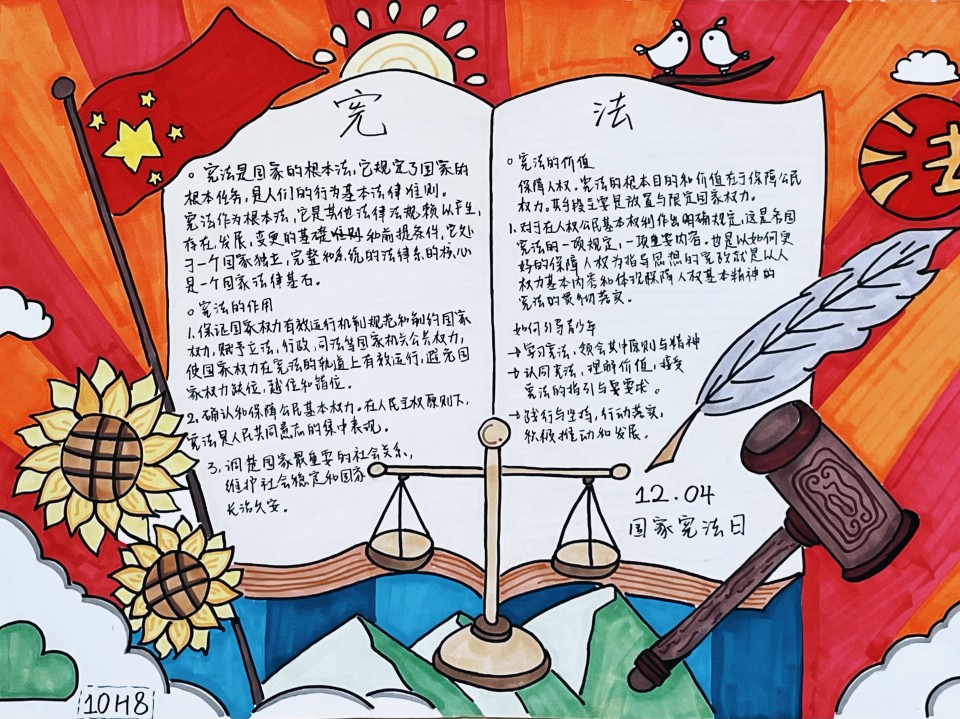 宪
。宪法是国家的根本法，它规定了国家的
根本任务，是人们的行为基本法律准则。
宪法作为根本法，它是其他法律法规赖以产生，
存在，发展，变更的基础和前提条件，它处
于一个国家独立，完整和系统的法律系的核心
是一个国家法律基石。
。宪法的作用
1.保证国家权力有效运行机制规范和制约国家
权力，赋予立法，行政，司法等国家机关公共权力，
使国家权力在宪法的轨道上有效运行，避免国
家权力政位，越位和错位。
2.确认和保障公民基本权力。在人民主权原则下，
宪法是人民共同意志的集中表现。
3，调整国家最重要的社会关系，
维护社会稳定和国家
长治久安。
法
。宪法的价值
保障人权，宪法的根本目的和价值在于保障公民
权力。其手段主要是放置与限定国家权力。
1.对于在人权公民基本权利作出明确规定，这是各国
宪法的一项规定，一项重要内容。也是以如何更
好的保障人权为指导思想的宪政就是以人
权力基本内容和体现保障人权基本精神的
宪法的落实。
如何引导青少年
→学习宪法，领会其中原则与精神
→认同宪法，理解价值，接受
宪法的指引与要求。
→践行与坚持，行动落实，
积极推动和发展。
12.04
国家宪法日
法
10H8